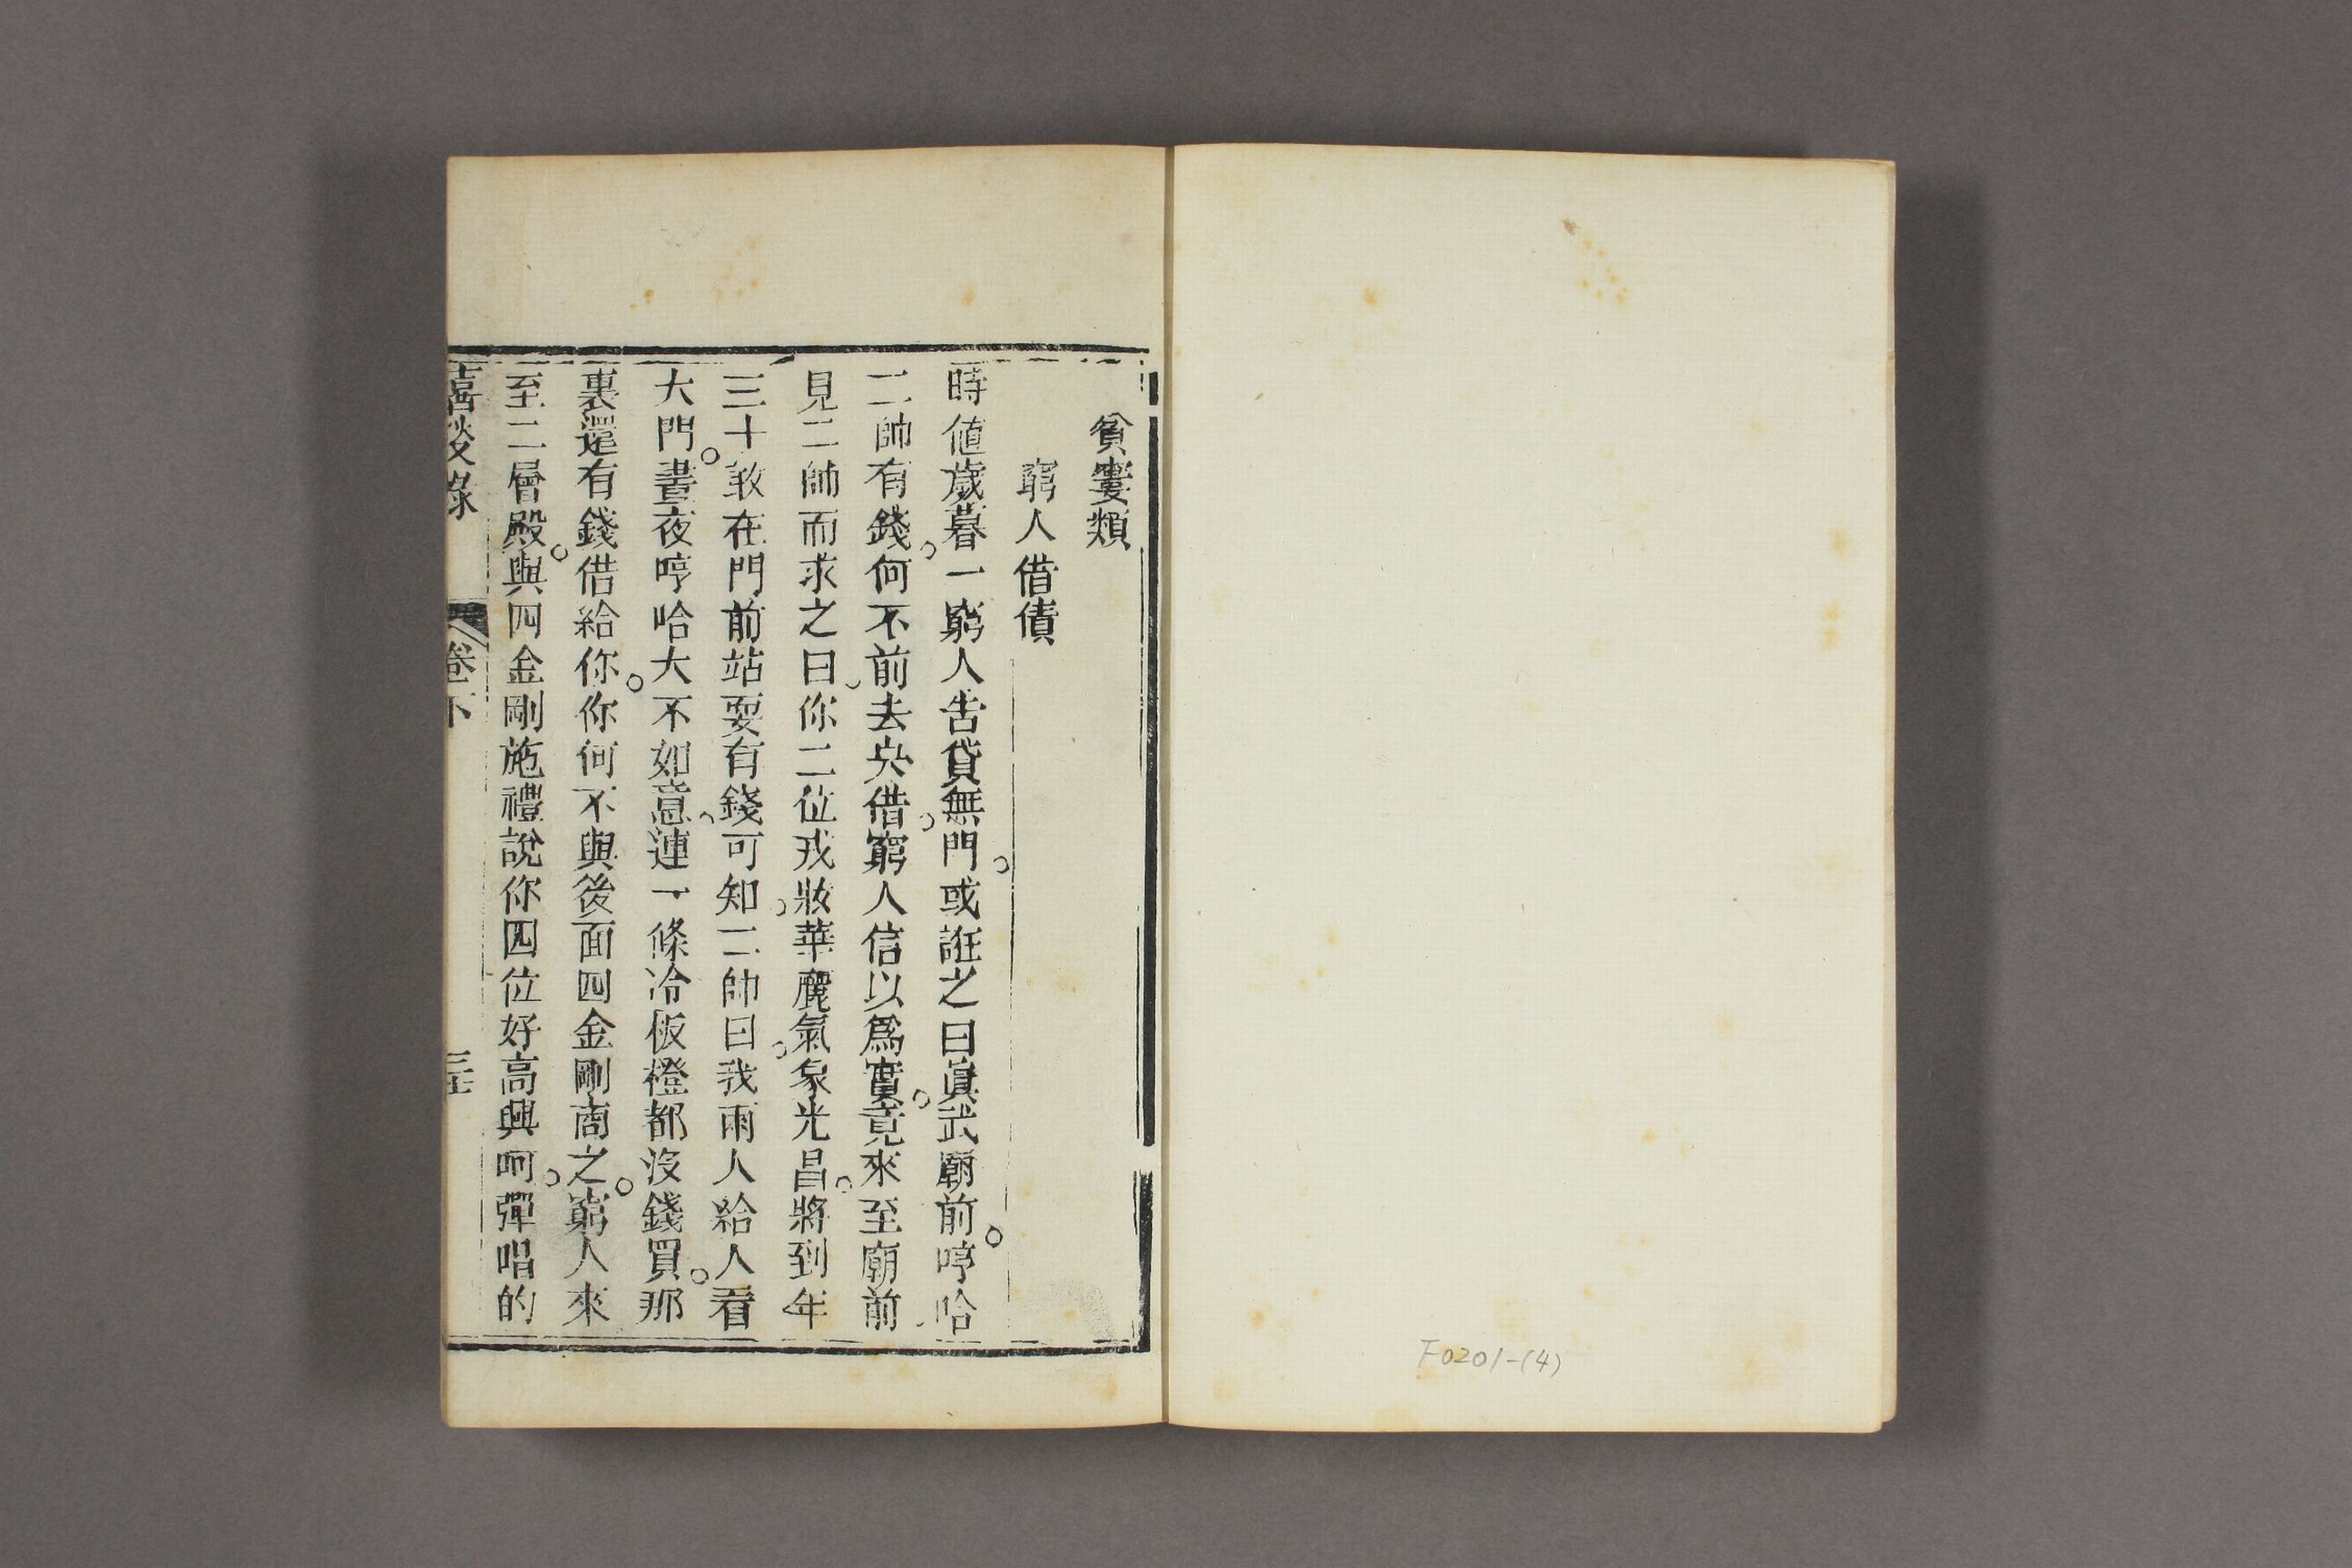 貧寠類
窮人借債
時値歲暮一窮人告貸無門○或誑之曰眞武廟前○哼哈
二帥有錢○何不前去央借○窮人信以爲實○竟來至廟前
見二帥而求之曰你二位戎妝華麗氣象光昌○將到年
三十敢在門前站耍有錢可知○二帥曰○我兩人給人看
大門○晝夜哼哈大不如意○連一條冷板櫈都沒錢買○那
裏還有錢借給你○你何不與後面四金剛商之○窮人來
至二層殿○與四金剛施禮說你四位好高興呵○彈唱的
喜談錄 卷下
F0201-(4)